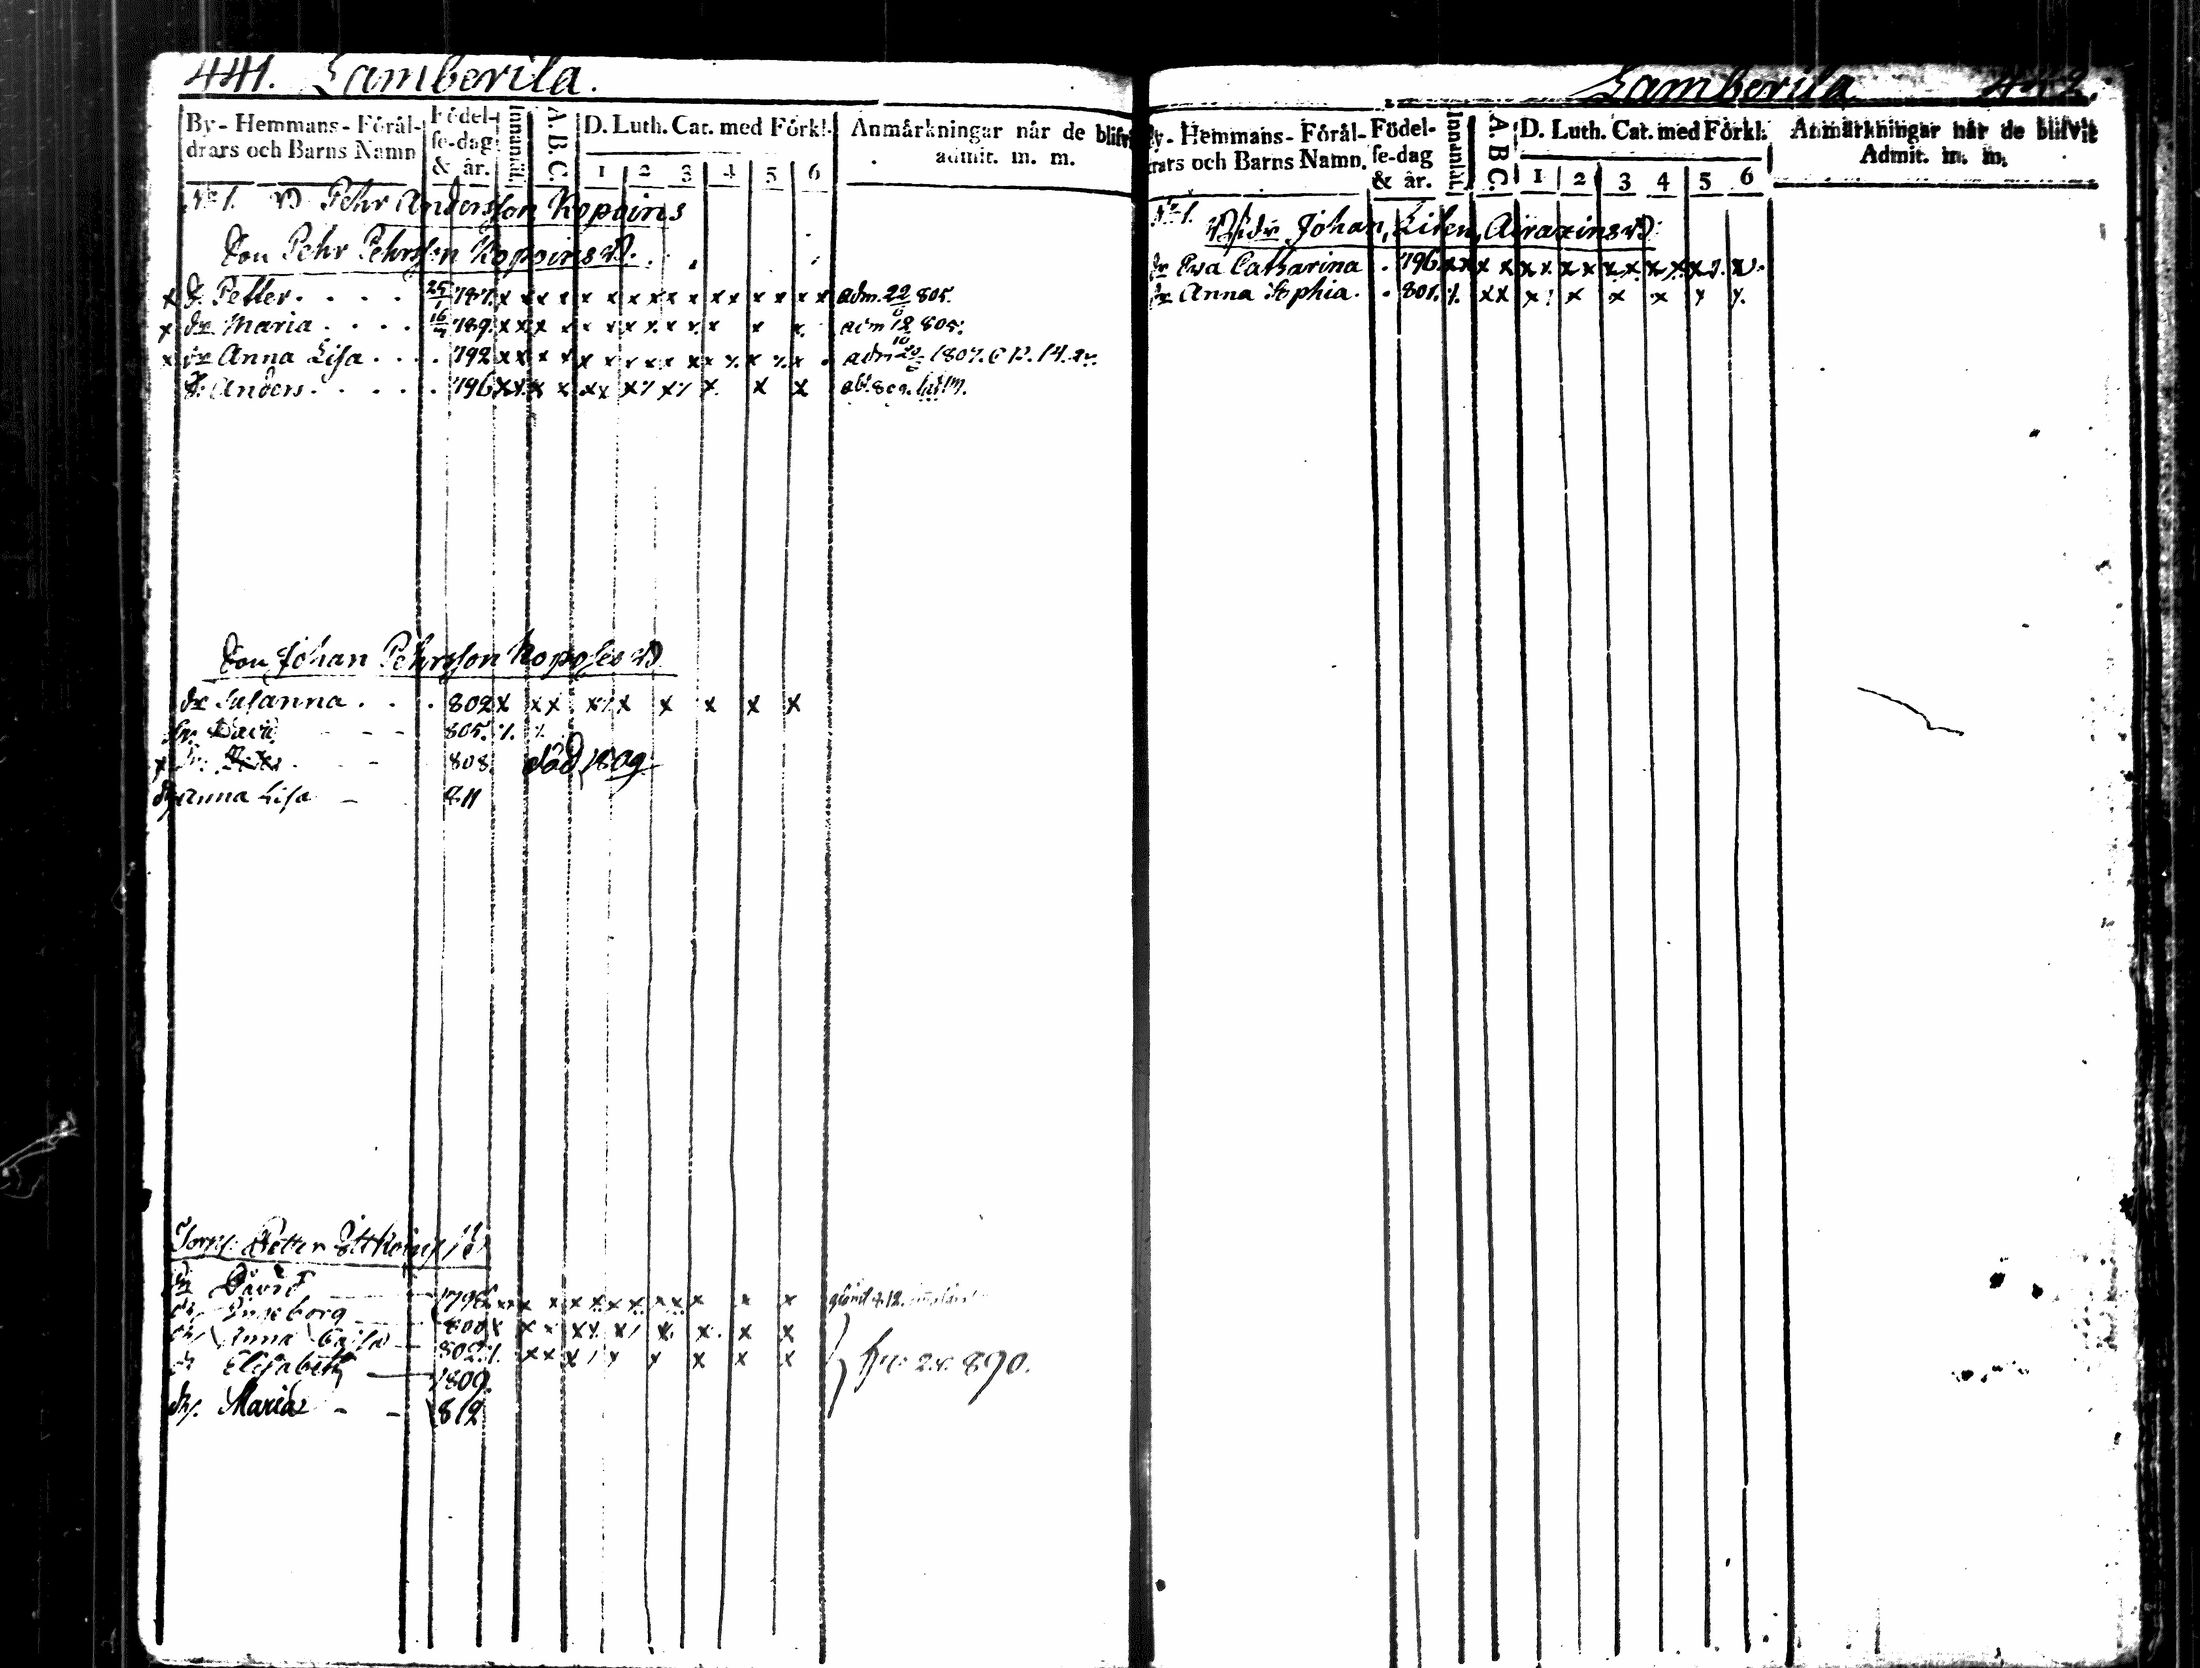 441. Lamberila.
By-Hemmans-Föräl-
drars och Barns Namn
Födel-
se-dag
& år.
Innantil.
A. B. C.
D. Luth. Cat. med Förkl.
1 2 3 4 5 6
Anmärkningar når de blifvit
admit. m. m.
No 1. Pehr Andersson Kopoins
Son Pehr Pehrsson Kopoins
x S. Petter. . . . . 25/1 787. x x x x x x x x x x x x x x x x adm. 22/6 805.
x dr Maria . . . . 16/7 789. x x x x x x x x x x x x x adm 805.
x dr Anna Lisa . . . . 792 x x x x x x x x x x x x x x x x 1807.
S. Anders. . . . . 796 x x x x x x x x x x x x x
Son Johan Pehrsson
dr Susanna . . . . 802 x x x x x x x x x x
Sn. David - - - 805.
x 808. död 1809
dr Anna Lisa - 811
Petter
Sn David 1798 x x x x x x x x x x x x x
dr Ingeborg 800 x x x x x x x x x x x
dr Anna Caisa 802 x x x x x x x x x
dr Elisabeth 1809. 890.
dr. Maria - - 1812
Lamberila 442.
By-Hemmans-Föräl-
drars och Barns Namn.
Födel-
se-dag
& år.
Innantil.
A. B. C.
D. Luth. Cat. med Förkl.
1 2 3 4 5 6
Anmärkningar når de blifvit
Admit. m. m.
No 1.
Johan, Liten, Airaxins
dr Eva Catharina . 796. x x x x x x x x x x x x x
dr Anna Sophia. . 801. x x x x x x x x